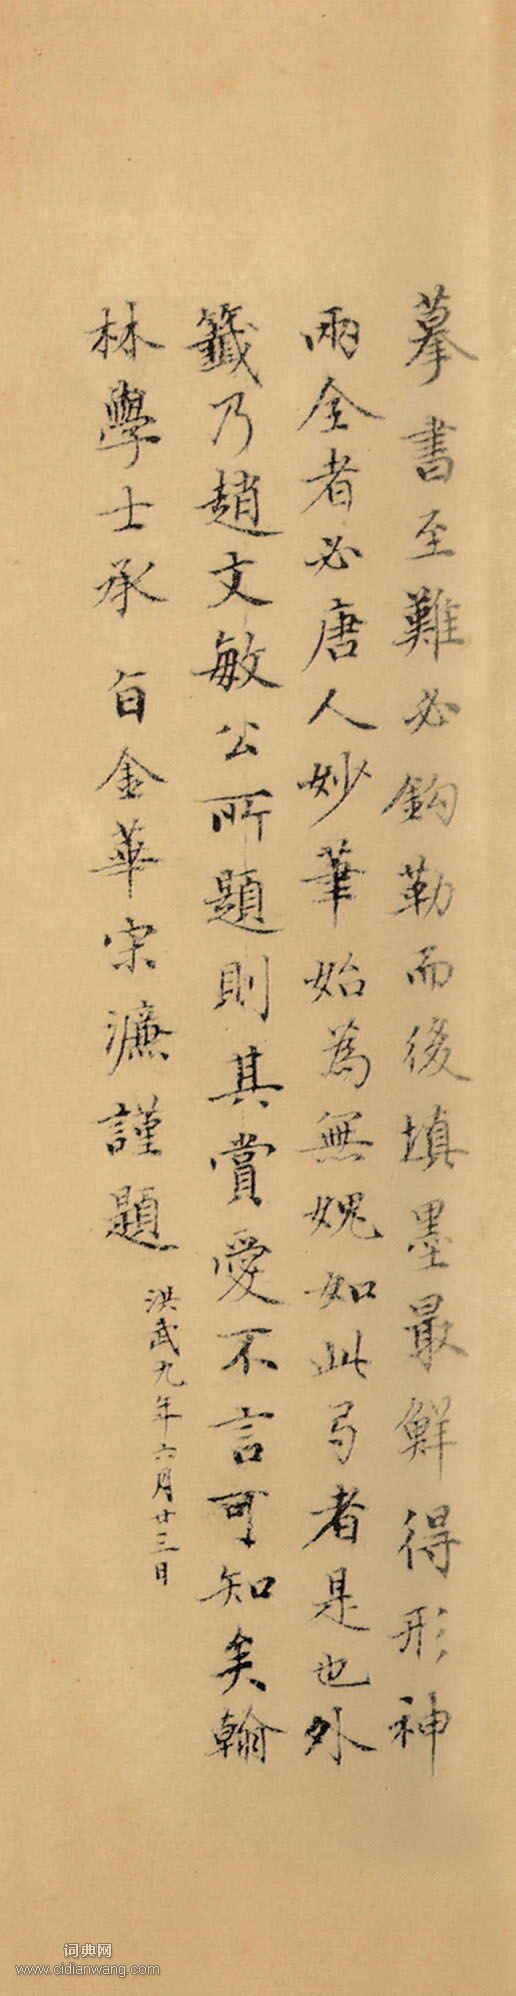 摹書至難必鈎勒而後填墨最鮮得形神
兩全者必唐人妙筆始為無媿如此弓者是也外
籤乃趙文敏公所題則其賞愛不言可知矣翰
林學士承 旨金華宋濂謹題
洪武九年六月廿三日
词典网
www.cidianwang.com